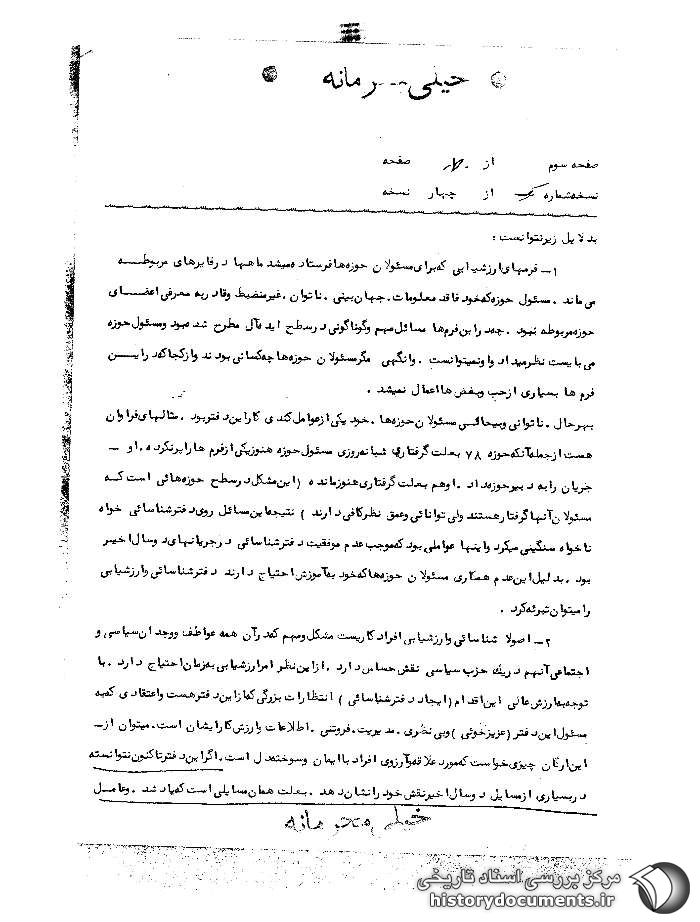 خیلی محرمانه
صفحه سوم از چهار صفحه
نسخه شماره یک از چهار نسخه
بدلایل زیر نتوانست :
۱ــ فرمهای ارزشیابی که برای مسئولان حوزه‌ها فرستاده میشد ماهها در فایرهای مربوطــه
می‌ماند . مسئول حوزه که خود فاقد معلومات ، جهان‌بینی ، ناتوان ، غیرمنضبط وقادر به معرفی اعضــای
حوزه مربوطه نبود . چه در این فرم‌ها مسائل مهم وگوناگونی در سطح ایده‌آل مطرح شده بود ومسئول حوزه
می بایست نظر میداد واو نمیتوانست . وانگهی مگر مسئولان حوزه‌ها چه کسانی بودند واز کجا که در ایــن
فرم ها بسیاری از حب وبغض‌ها اعمال نمیشد .
بهر حال ، ناتوانی وبیحالــی مسئولان حوزه‌ها ، خود یکی از عوامل کندی کار این دفتر بود . مثالهای فراوان
هست از جمله آنکه حوزه ۷۸ بعلت گرفتاری شبانه‌روزی مسئول حوزه هنوز یکی از فرم ها را پر نکرده . او ــ
جریان را به دبیر حوزه داد . او هم بعلت گرفتاری هنوز مانده ( این مشکل در سطح حوزه‌هائی است کــه
مسئولان آنها گرفتار هستند ولی توانائی وعمق نظر کافی دارند ) نتیجه این مسائل روی دفتر شناسائی خواه
ناخواه سنگینی میکرد واینها عواملی بود که موجب عدم موفقیت دفتر شناسائی در جریانهای دو سال اخیر
بود . بدلیل این عدم همکاری مسئولان حوزه‌ها که خود به آموزش احتیاج دارند دفتر شناسائی وارزشیابی
را میتوان تبرئه کرد .
۲ــ اصولا شناسائی وارزشیابی افراد کاریست مشکل ومهم که در آن همه عواطف ووجدان سیاسی و
اجتماعی آنهم در یک حزب سیاسی نقش حساس دارد . از این نظر امر ارزشیابی به زمان احتیاج دارد . با
توجه به ارزش عالی این اقدام ( ایجاد دفتر شناسائی ) انتظارات بزرگی که از این دفتر هست واعتقادی که به
مسئول این دفتر ( عزیز خوئی ) وبی نظری ، مدیریت ، فروتنی ، اطلاعات وارزش کار ایشان است ، میتوان از ــ
این ارگان چیزی خواست که مورد علاقه وآرزوی افراد با ایمان وسوخته دل است . اگر این دفتر تاکنون نتوانسته
در بسیاری از مسایل دو سال اخیر نقش خود را نشان دهد . بعلت همان مسایلی است که یاد شد . وعامــل
خیلی محرمانه
مرکز بررسی اسناد تاریخی
historydocuments.ir